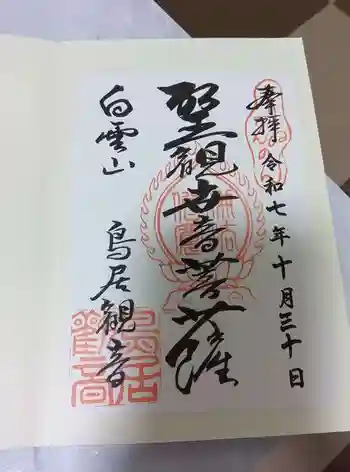 奉拝
令和七年十月三十日
聖観世音菩薩
白雲山
鳥居観音
鳥居
観音